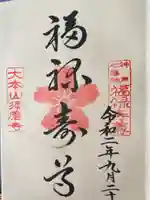 福禄寿尊
令和二年九月二十
大本山須磨寺